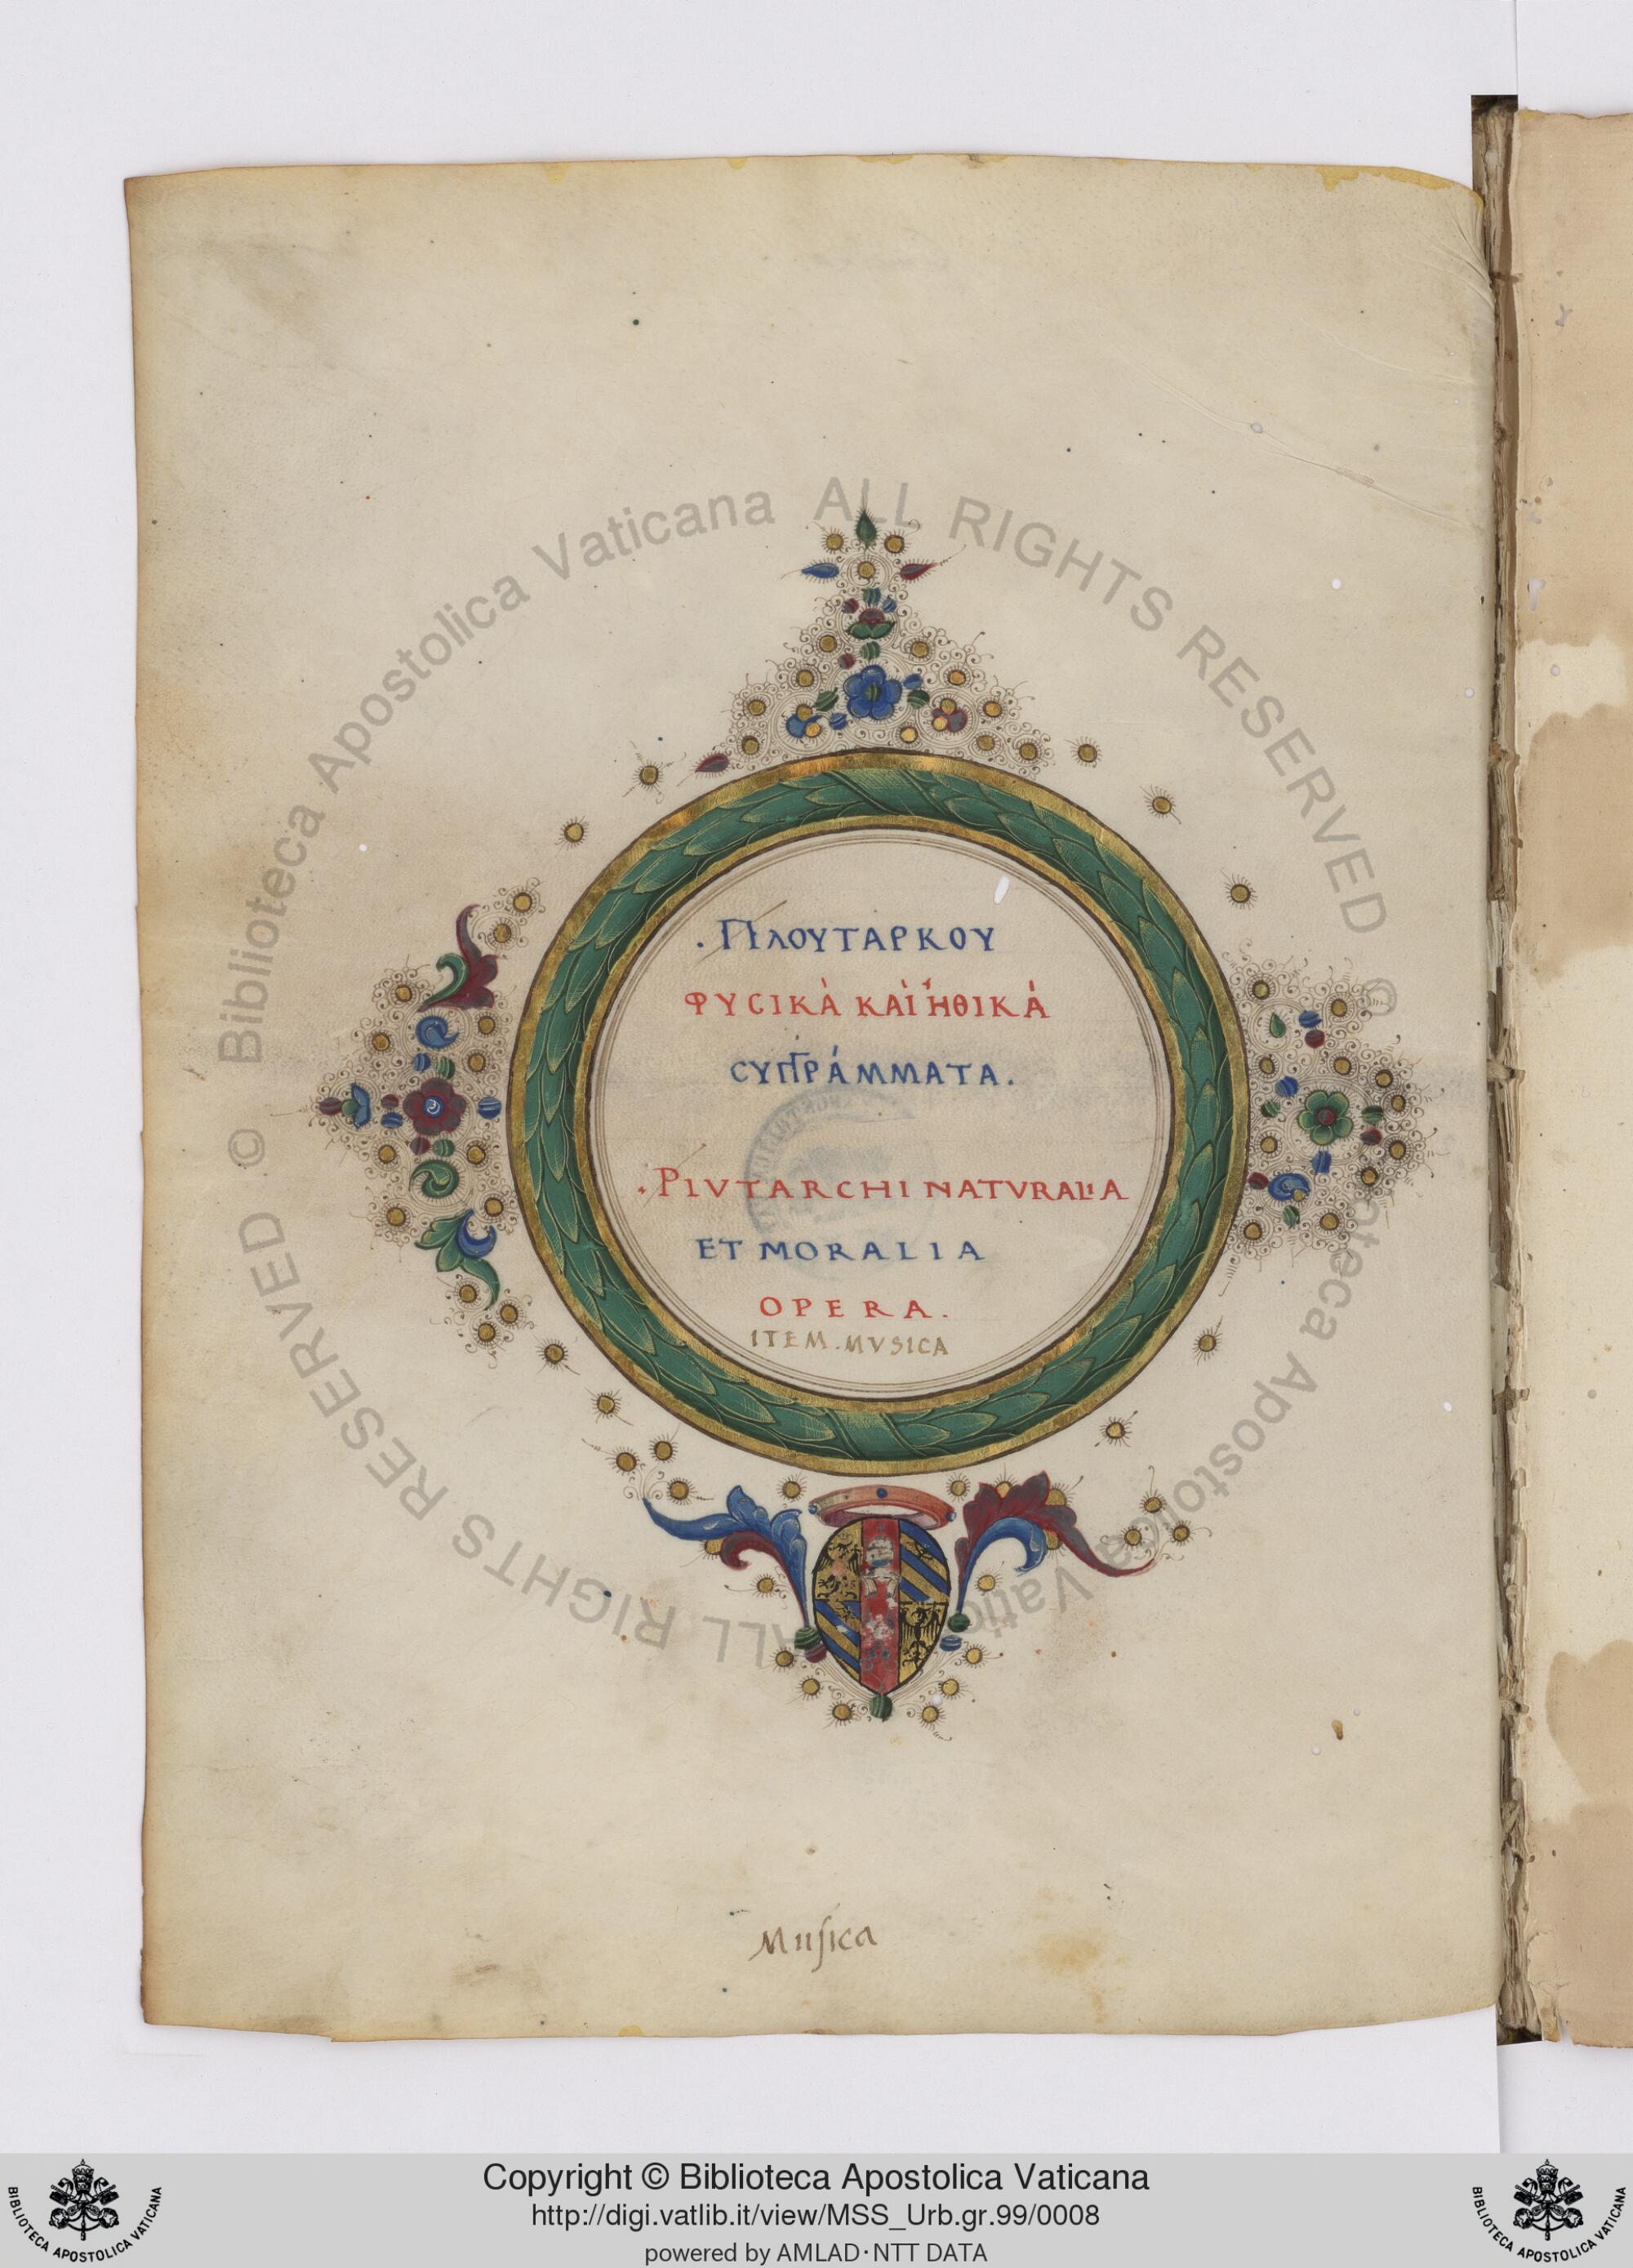 . ΠΛΟΥΤΑΡΚΟΥ
ΦΥCΙΚᾺ ΚΑῚ ἨΘΙΚΆ
CΥΓΓΡΆΜΜΑΤΑ.
. PLVTARCHI NATVRALIA
ET MORALIA
OPERA.
ITEM. MVSICA
Musica
© Biblioteca Apostolica Vaticana ALL RIGHTS RESERVED
© Biblioteca Apostolica Vaticana ALL RIGHTS RESERVED
Copyright © Biblioteca Apostolica Vaticana
http://digi.vatlib.it/view/MSS_Urb.gr.99/0008
powered by AMLAD·NTT DATA
BIBLIOTECA APOSTOLICA VATICANA
BIBLIOTECA APOSTOLICA VATICANA